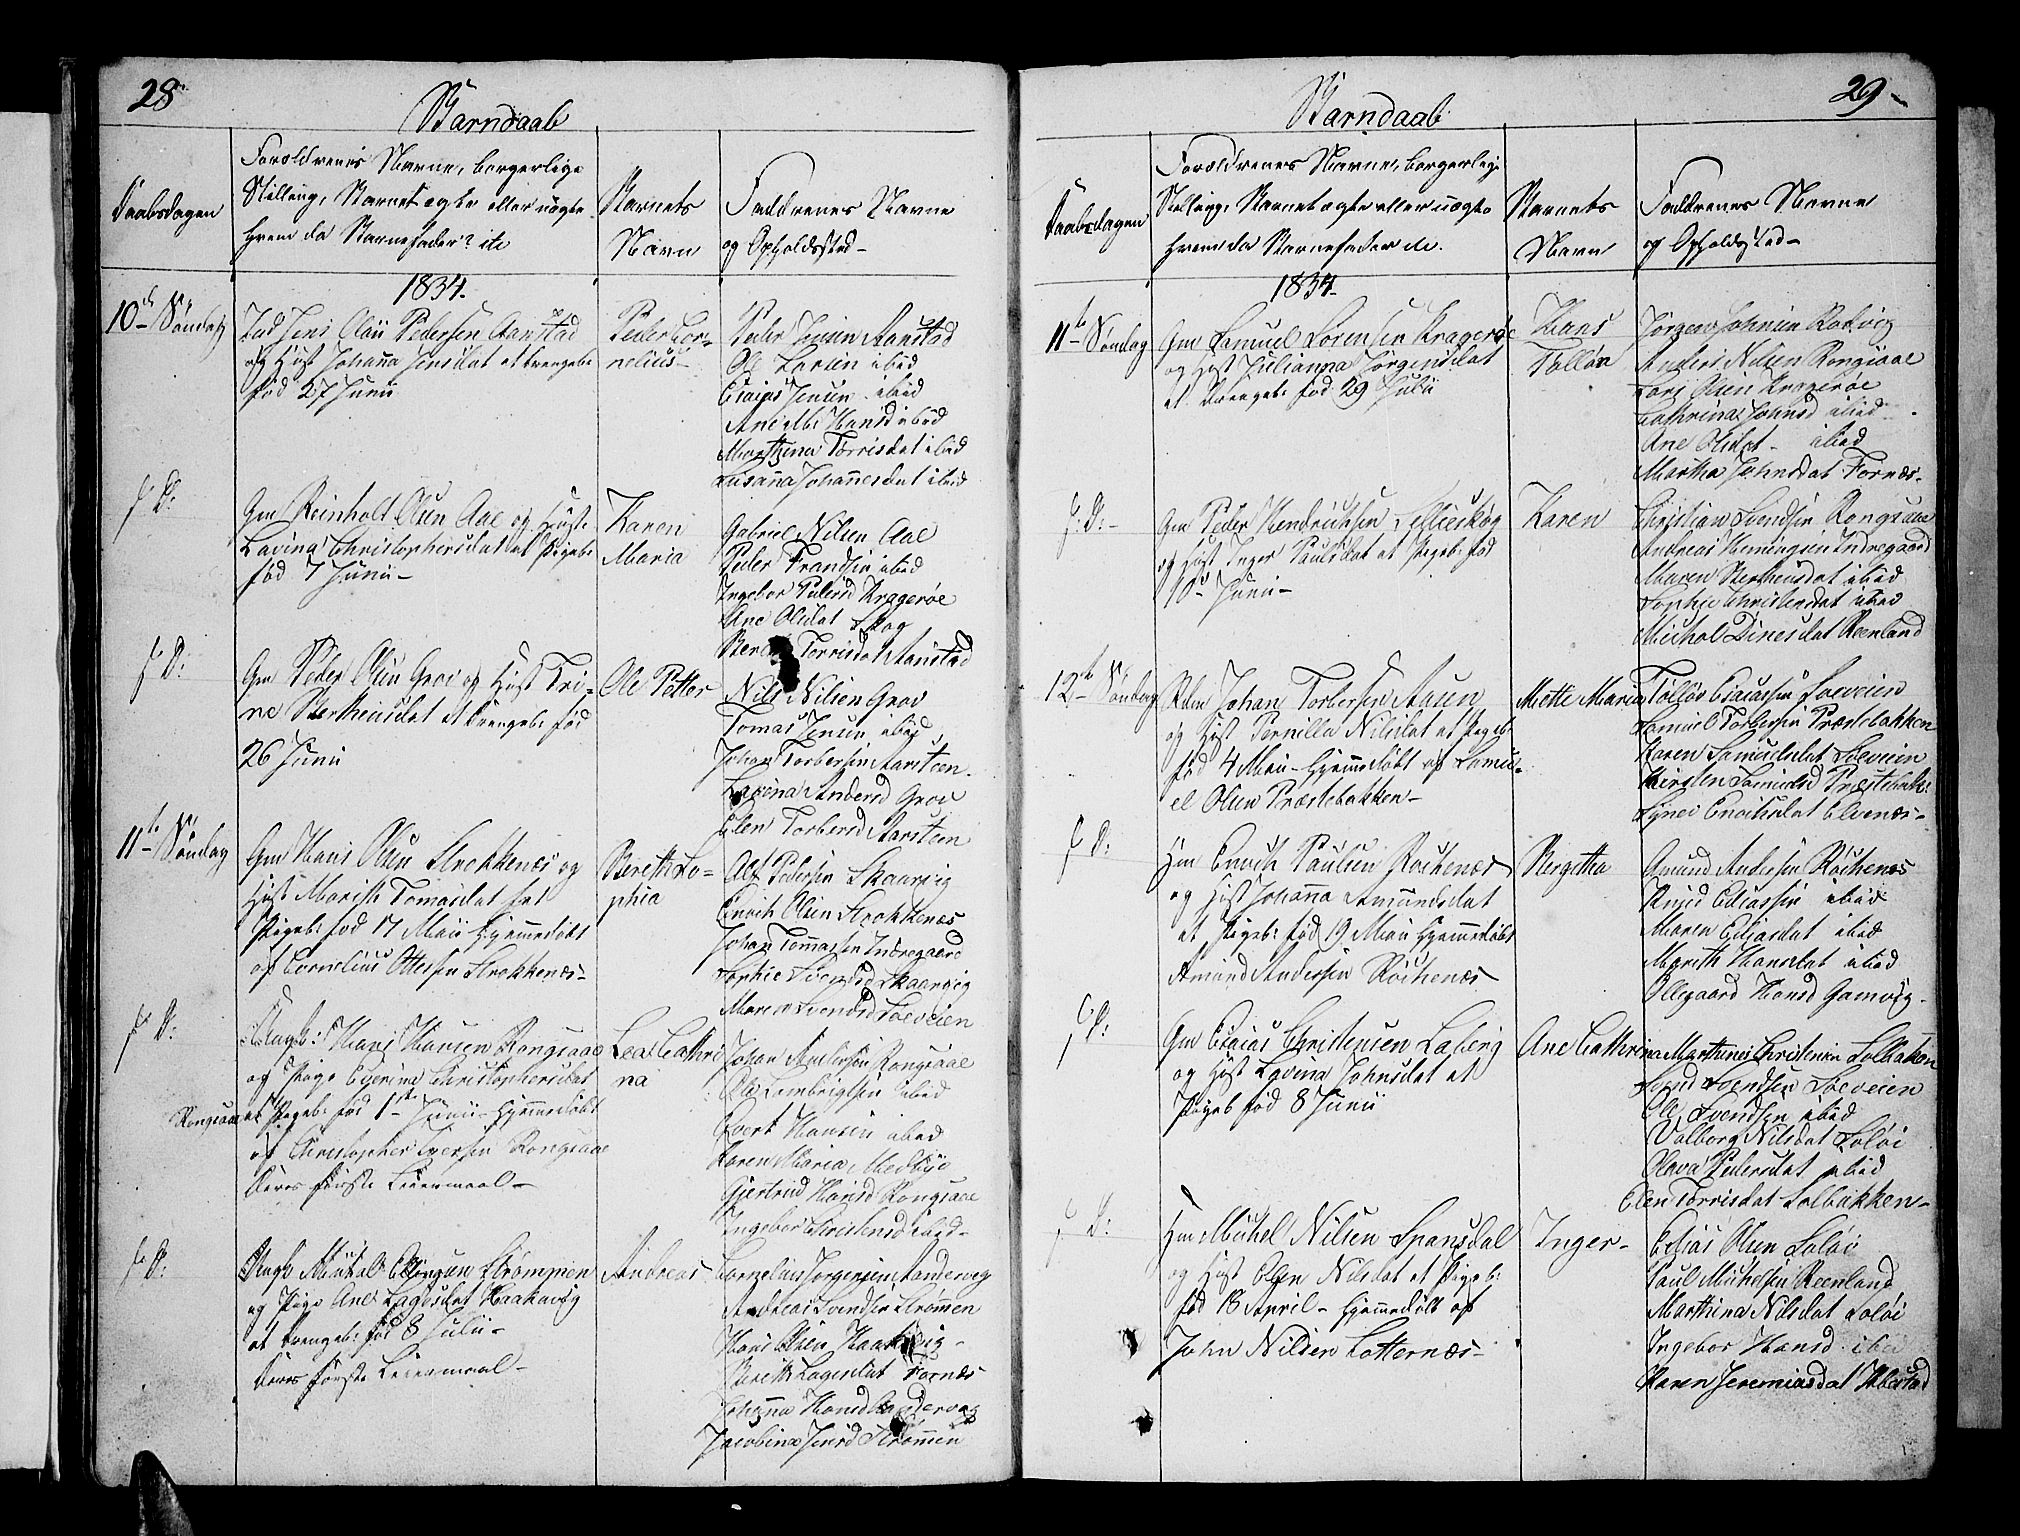 28
Barndaab
Daabsdagen
Forældrenes Navne, borgerlige
Stilling, Barnet ægte eller uægte
hvem da Barnefader? etc
Barnets
Navn
Faddrenes Navne
og Opholdssted
1834.
10de Søndag
Jens Olai Pedersen Aanstad
og Hust Johanna Jensdat et Drengeb
fød 27 Junii
Peder Cor-
nelius
Peder Jensen Aanstad
Ole Larsen ibid
Esaias Jensen ibid
Ane Mb: Hansd ibid
Marthina Torrisdat ibid
Susanna Johannesdat ibid
s. D:
Gm Reinholt Olsen Aae og Hust:
Lavina Christophersdat et Pigeb:
fød 7 Junii
Karen
Maria
Gabriel Nilsen Aae
Peder Frandsen ibid
Ingebor Pedersd Kragerøe
Ane Olsdat Skog
Torrisdat Aanstad
s. D:
Gm Peder Olsen Grov og Hust Tri-
ne Bertheusdat et Drengeb: fød
26 Junii
Ole Petter
Nils Nilsen Grov
Tomas Jensen ibid
Johan Torbersen Aarsteen
Lavina Andersd Grov
Elen Torbersd Aarsteen
11te Søndag
Gm Hans Olsen Strokkenæs og
Hust Marith Tomasdat
Pigeb: fød 17 Maii Hjemmedøbt
af Cornelius Ottesen Strokkenæs
Bereth So-
phia
Alf Pedersen Skaarvig
Enoch Olsen Strokkenæs
Johan Tommasen Indregaard
Sophie Skaarvig
Maren Svendsd Soeveien
s. D:
Ungk: Hans Hansen Rongsaae
og Pige Christophersdat
Rongsaae et Pigeb: fød 1ste Junii Hjemmedøbt
af Christopher Iversen Rongsaae
Deres første Leiermaal
Lea Cathri
na
Johan Andersen Rongsaae
Ole Lambrigtsen ibid
Evert Hansen ibid
Karen Maria Medbye
Gjertrud Hansd Rongsaae
Ingebor Christensd ibid
s. D:
Ungk Mikal Strømmen
og Pige Ane Lagesdat Haakavig
et Drengeb: fød 8 Julii
Deres første Leiermaal
Andreas
Cornelius Jørgensen Sandevog
Andreas Svendsen Strømmen
Hans Olsen Haakavig
Berith Lagesdat Fornæs
Johanna Hansd Sandevog
Jacobina Jensd Strømmen
29
Barndaab
Daabsdagen
Forældrenes Navne, borgerlige
Stilling, Barnet ægte eller uægte
hvem da Barnefader etc.
Barnets
Navn
Faddrenes Navne
og Opholdsted
1834
11te Søndag
Gm Samuel Sørensen Kragerøe
og Hust Julianna Jørgensdat
et Drengeb: fød 29 Julii
Hans
Tølløv
Jørgen Johnsen Rotvig
Anders Nilsen Rongsaae
Lars Olsen Kragerøe
Cathrina Johnsd ibid
Ane Olsdat ibid
Martha Johnsdat Fornæs
s. D:
Gm Peder Hendrichsen Lillieskog
og Hust Inger Paulsdat et Pigeb: fød
10 Junii
Karen
Christian Svendsen Rongsaae
Andreas Hemingsen Indregaard
Maren Bertheusdat ibid
Sophie Christensdat ibid
Michal Dinesdat Reenland
12te Søndag
Johan Torbersen Aasen
og Hust Pernilla Nilsdat et Pigeb
fød 4 Maii Hjemmedøbt af Samu-
el Olsen Præstebakken
Mette Maria
Tølløv Esaiasen Soeveien
Samuel Torbersen Præstebakken
Karen Samuelsdat Soeveien
Kirsten Samuelsd Præstebak:
Enochsdat Elvenæs
s. D:
Hm Enoch Paulsen Röchenæs
og Hust Johanna Amundsdat
et Pigeb: fød 19 Maii Hjemmedøbt
Amund Andersen Röchenæs
Bergitha
Amund Andersen Röchenæs
Knud Esaiasen ibid
Maren Esaiasdat ibid
Marith Hansdat ibid
Ollegaard Hansd Gamvig
s. D:
Gm Esaias Christensen Laberg
og Hust Lavina Johnsdat et
Pigeb fød 8 Junii
Ane Cathrina
Marthines Christensen Solbakken
Svend Svendsen Soeveien
Ole Svendsen ibid
Valborg Nilsdat Soløi
Olava Pedersdat ibid
Elen Torrisdat Solbakken
s. D:
Hm Mikel Nilsen Spansdal
og Hust Elen Nilsdat et Pigeb:
fød 13 April Hjemmedøbt af
John Nilsen Lotternæs
Inger
Esaias Olsen Soløi
Paul Michelsen Reenland
Marthina Nilsdat Soløi
Ingebor Hansd ibid
Karen Jeremiasdat Ibbestad